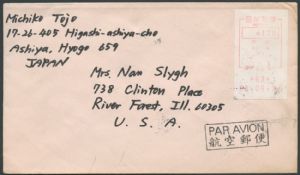 Michiko Tojo
17-26-405 Higashi-ashiya-cho
Ashiya, Hyogo 659
JAPAN
Mrs. Nam Slygh
738 Clinton Place
River Forest, Ill. 60305
U. S. A.
PAR AVION
航空郵便